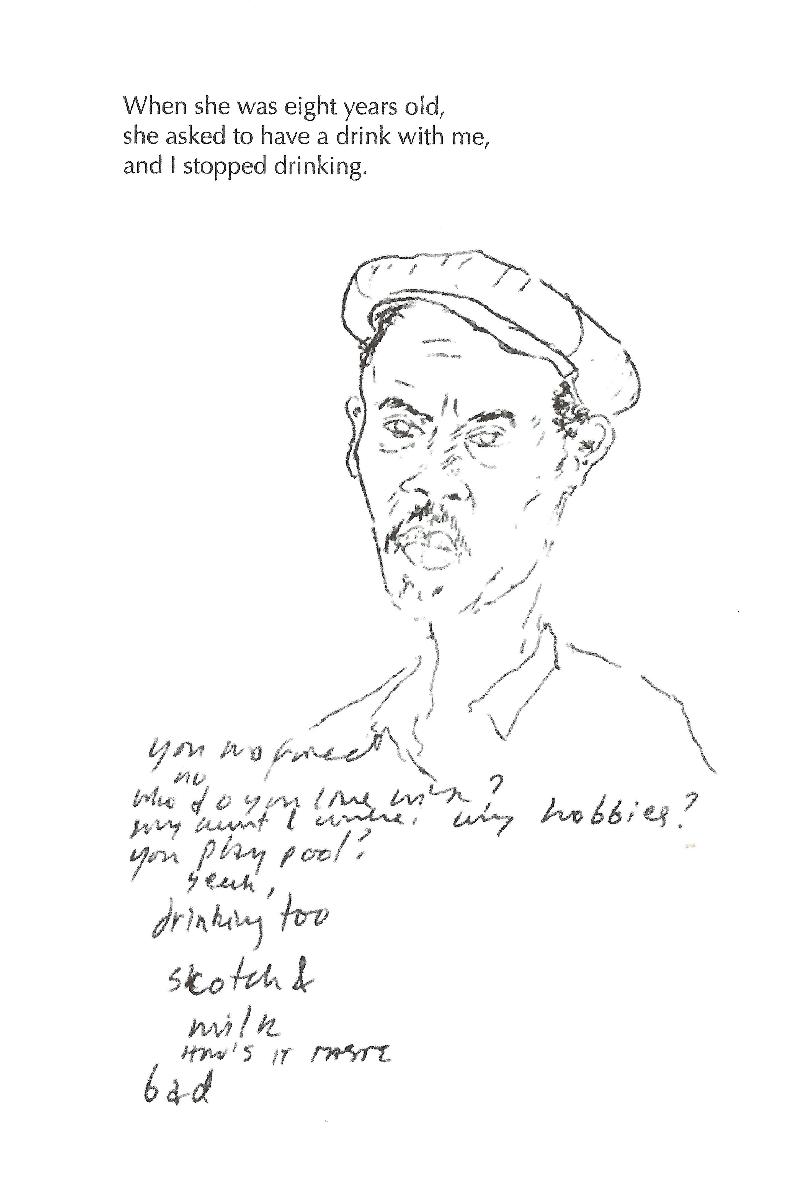 When she was eight years old,
she asked to have a drink with me,
and I stopped drinking.
you no
no
who do you live with?
my aunt & uncle. any hobbies?
you play pool?
yeah,
drinking too
skotch &
milk
HOW'S IT TASTE
bad